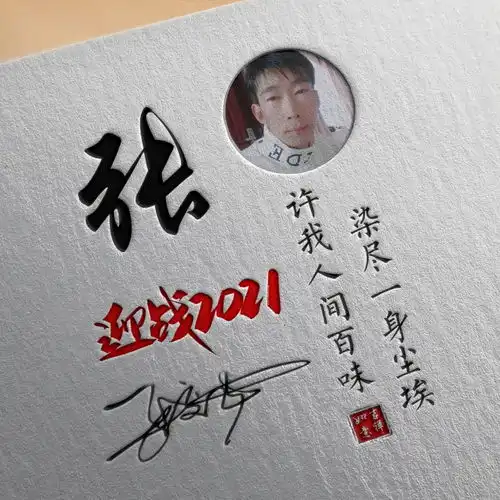 张
迎战2021
染尽一身尘埃
许我人间百味
吉祥如意